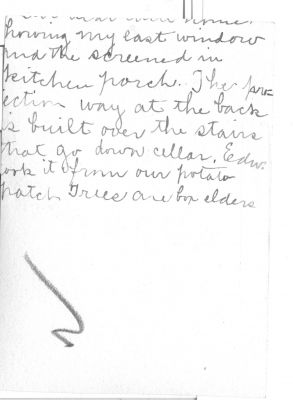 howing my east window
and the screened in
kitchen porch. The pro-
ection way at the back
is built over the stairs
that go down cellar. Edw.
ook it from our potato
patch Trees are box elders